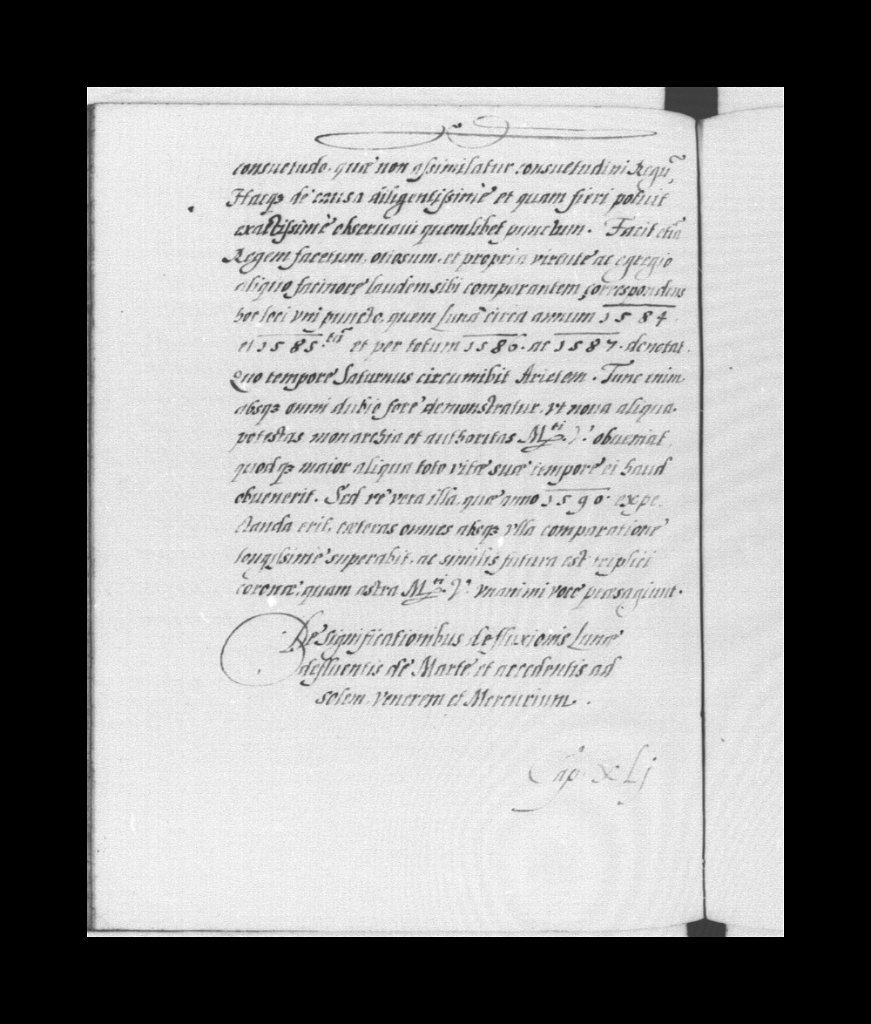 consuetudo, quæ non assimilatur consuetudini Regũ,
Hacq; de causa diligentissimè et quam fieri potuit
exactissimè observaui quemlibet punctum. Facit etiã
Regem facetum, otiosum, et propria virtute ac egregio
aliquo facinore laudem sibi comparantem, correspondens
hoc loci vni puncto, quem Lunã circa annum 1584
et 1585.tũ et per totum 1586. ac 1587. denotat.
Quo tempore Saturnus circumibit Arietem. Tunc enim
absq; omni dubio fore demonstratur, vt noua aliqua
potestas monarchia et authoritas M.ti V.ę obueniat
quodq; maior aliqua toto vitæ suæ tempore ei haud
obuenerit. Sed re vera illa, quæ anno 1590. expe¬
ctanda erit, cæteras omnes absq; vlla comparatione
longissimè superabit, ac similis futura est triplici
coronæ, quam astra M.ti V.ę vnanimi voce præsagiunt.
De significationibus defluxionis Lunæ
defluentis de Marte et accedentis ad
solem, Venerem et Mercurium.
Cap. XLj